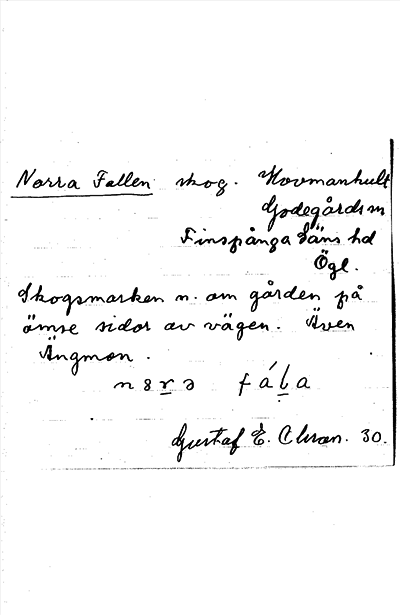 Norra Fallen skog. Hovmanhult
Godegårds sn
Finspånga läns hd
Ögl.
Skogsmarken n. om gården på
ömse sidor av vägen. Även
Ängmon.
Gustaf E. Clson. 30.